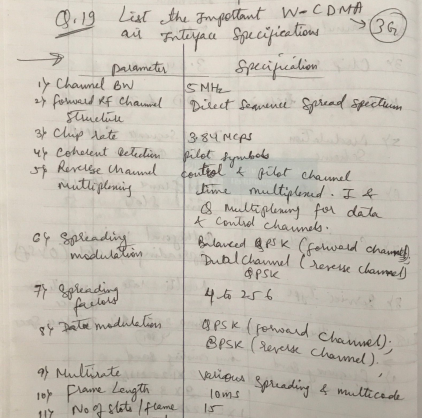 Q.19 List the Important W-CDMA → 3G
air Interface Specifications
Parameter Specification
1) Channel BW 5 MHz
2) Forward RF Channel Direct Sequence Spread Spectrum
Structure
3) Chip rate 3.84 MCPS
4) Coherent detection Pilot symbols
5) Reverse Channel control & pilot channel
multiplexing time multiplexed. I &
Q Multiplexing for data
& control channels.
6) Spreading Balanced QPSK (forward channel)
modulation Dual Channel (reverse channel)
QPSK
7) Spreading 4 to 256
factors
8) Data modulation QPSK (forward channel);
BPSK (reverse channel).
9) Multirate Various Spreading & multicode
10) Frame Length 10ms
11) No of slots / frame 15